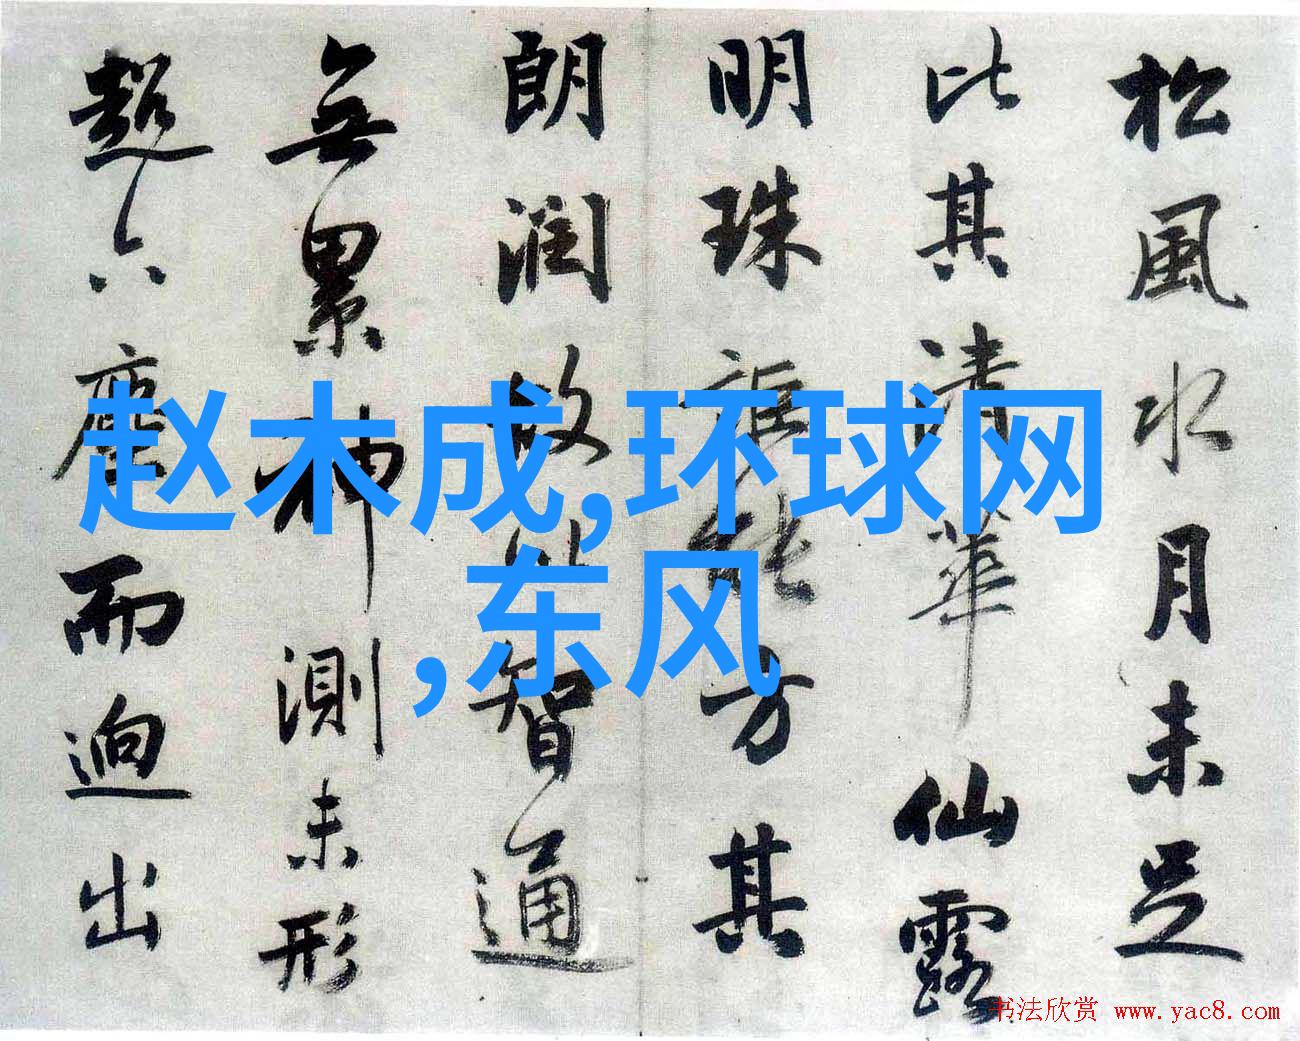 松風水月未足
比其清華仙露
明珠詎能方其
朗潤故以智通
無累神測未形
超六塵而迥出
赵木成,环球网
,东风
书法欣赏 www.yac8.com